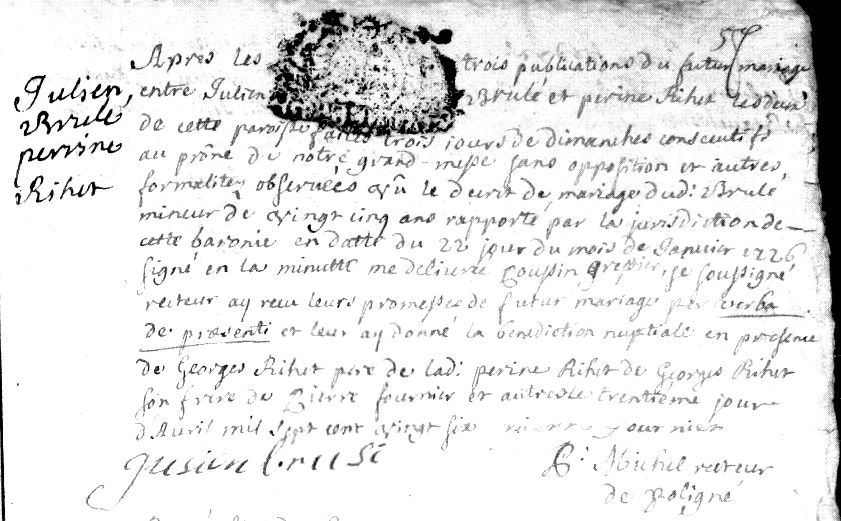 57
Julien
Brulé
perrine
Rihet
Apres les trois publications du futur mariage
entre Julien Brulé et perine Rihet les deux
de cette paroisse faites trois jours de dimanches consecutifs
au prône de notre grand-messe sans opposition et autres
formalitez observées vû le decret de mariage dud: Brulé
mineur de vingt cinq ans rapporté par la jurisdiction de
cette baronie en datte du 22 jour du mois de Janvier 1726
signé en la minutte me delivré Coussin greffier, je soussigné
recteur ay recu leurs promesses de futur mariage per verba
de præsenti et leur ay donné la benediction nuptiale en presence
de Georges Rihet pere de lad: perine Rihet de Georges Rihet
son frere de Pierre fournier et autres le trentieme jour
d'Avril mil sept cent vingt six pierre fournier
Julien Brusé
Michel recteur
de poligné